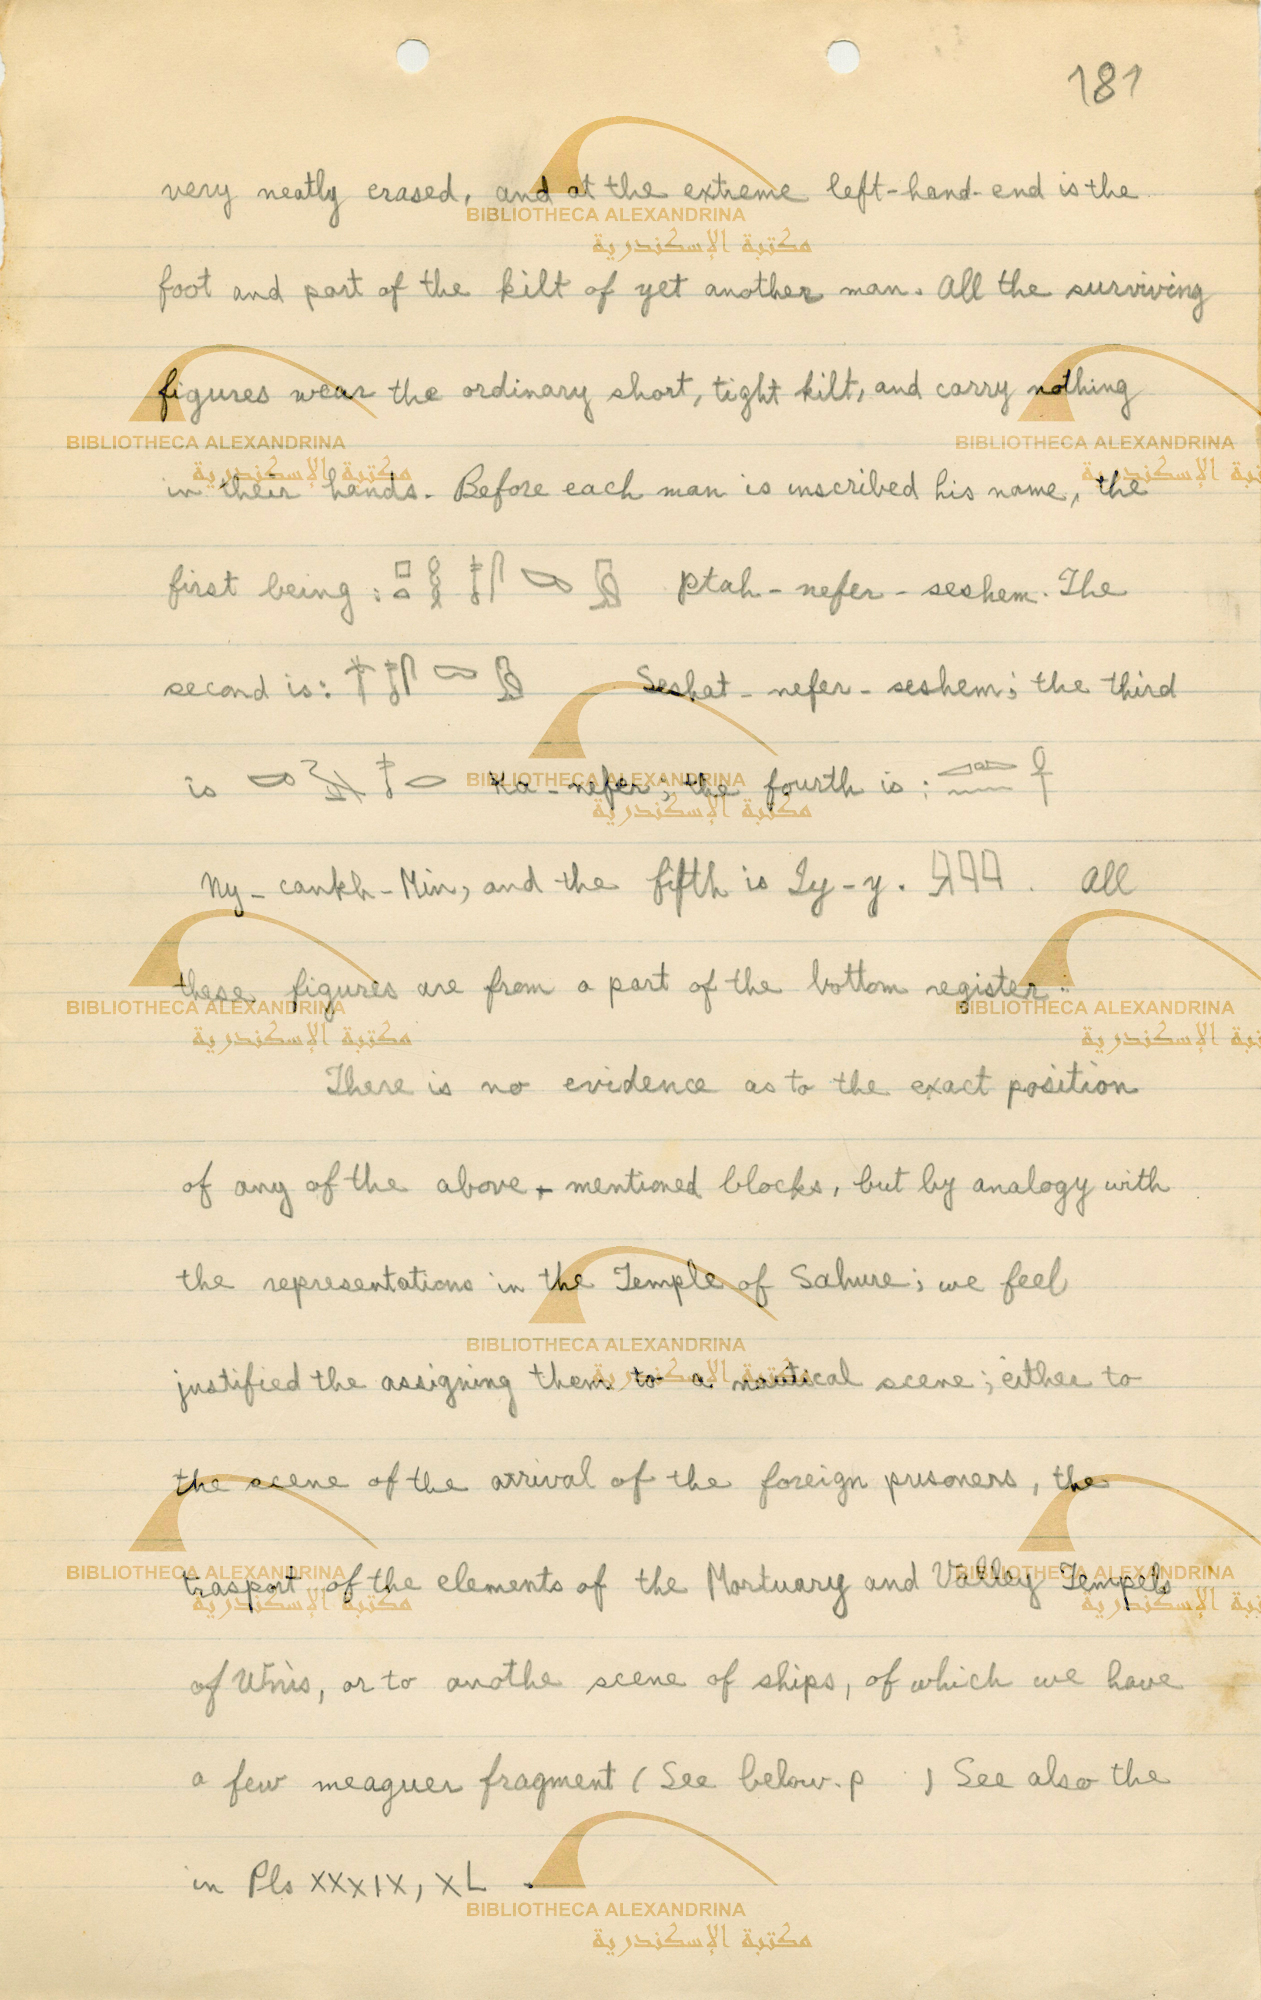 181
very neatly erased, and at the extreme left-hand-end is the
foot and part of the kilt of yet another man. All the surviving
figures wear the ordinary short, tight kilt, and carry nothing
in their hands. Before each man is inscribed his name, the
first being : Ptah - nefer - seshem. The
second is: Seshat - nefer - seshem; the third
is Ka - nefer; the fourth is :
Ny - cankh - Min, and the fifth is Iy - y. All
these figures are from a part of the bottom register.
There is no evidence as to the exact position
of any of the above - mentioned blocks, but by analogy with
the representations in the Temple of Sahure; we feel
justified the assigning them to a nautical scene; either to
the scene of the arrival of the foreign prisoners, the
trasport of the elements of the Mortuary and Valley Tempels
of Wnis, or to anothe scene of ships, of which we have
a few meaguer fragment ( See below. p ) See also the
in Pls XXXIX, XL .
BIBLIOTHECA ALEXANDRINA
مكتبة الإسكندرية